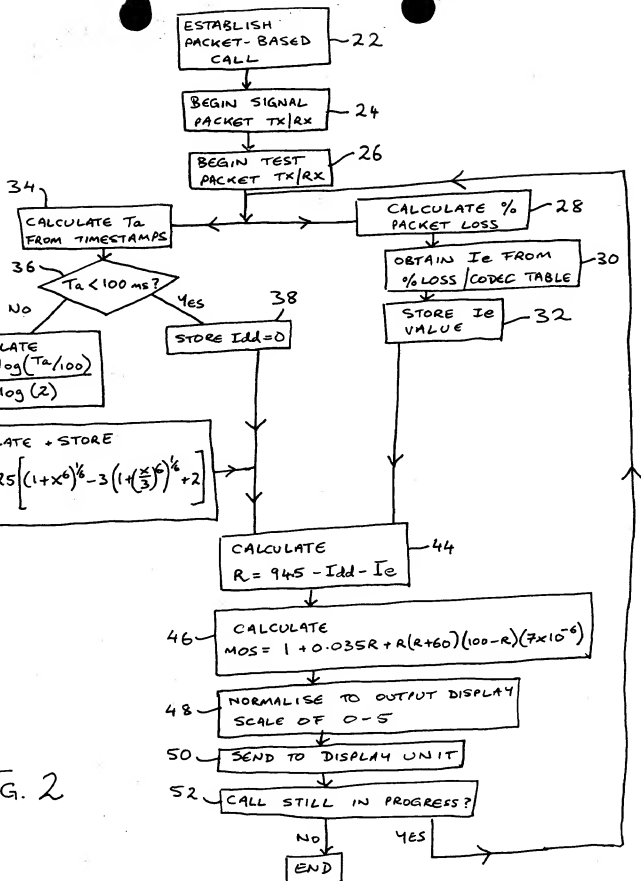 ESTABLISH
PACKET-BASED
CALL
22
BEGIN SIGNAL
PACKET TX/RX
24
BEGIN TEST
PACKET TX/RX
26
34
CALCULATE Ta
FROM TIMESTAMPS
CALCULATE %
PACKET LOSS
28
36
Ta < 100 ms?
OBTAIN Ie FROM
% LOSS / CODEC TABLE
30
NO
YES
38
STORE Idd = 0
STORE Ie
VALUE
32
LATE
log(Ta/100)
log (2)
LATE + STORE
25[(1+x^6)^1/6 - 3(1+(x/3)^6)^1/6 + 2]
CALCULATE
R = 94.5 - Idd - Ie
44
46
CALCULATE
MOS = 1 + 0.035R + R(R+60)(100-R)(7x10^-6)
48
NORMALISE TO OUTPUT DISPLAY
SCALE OF 0-5
50
SEND TO DISPLAY UNIT
52
CALL STILL IN PROGRESS?
NO
YES
END
G. 2